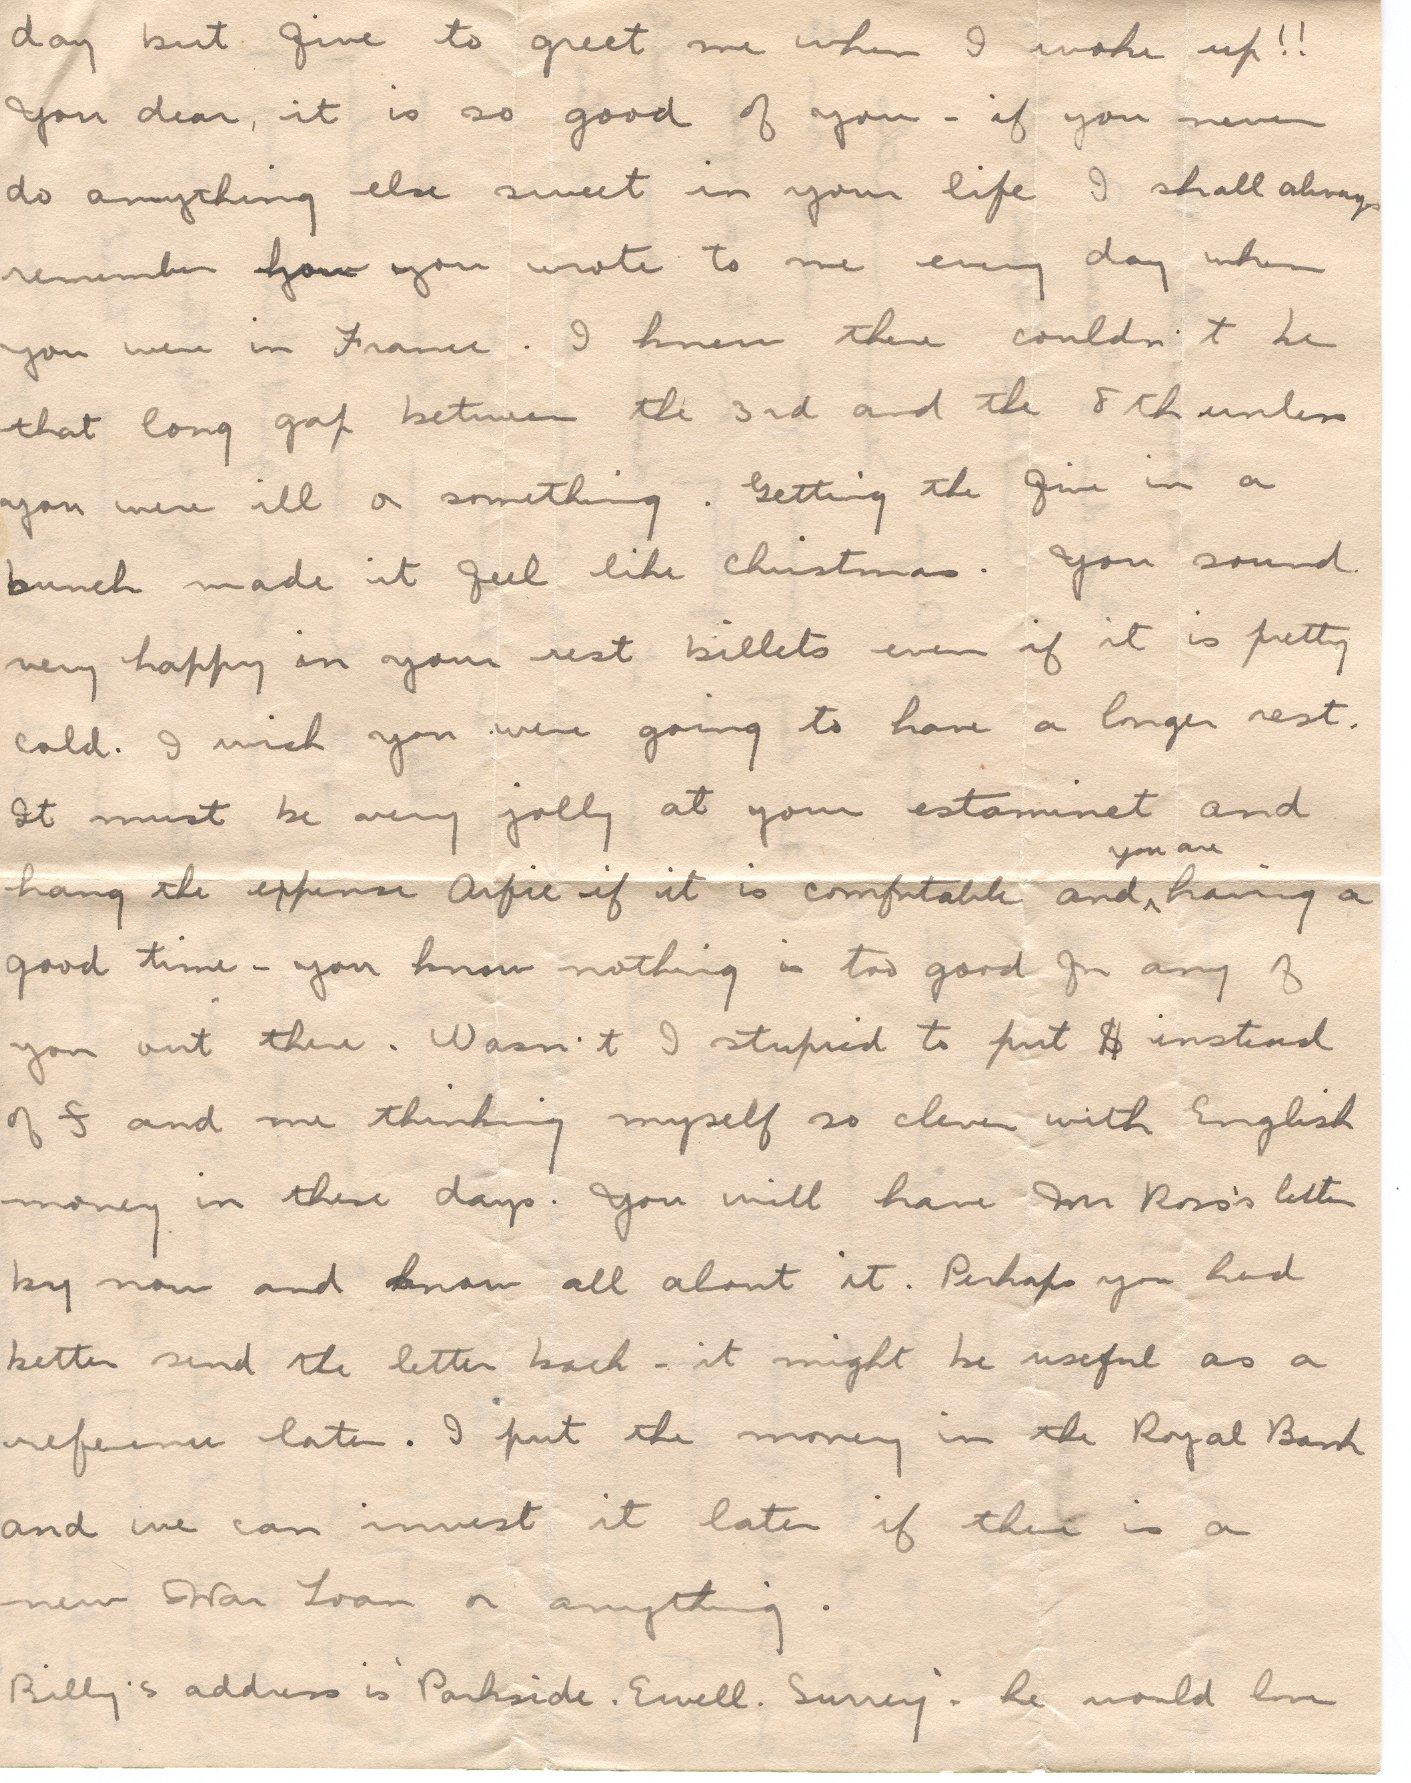 day but five to greet me when I woke up!!
You dear, it is so good of you - if you never
do anything else sweet in your life I shall always
remember how you wrote to me every day when
you were in France. I knew there couldn't be
that long gap between the 3rd and the 8th unless
you were ill or something. Getting the five in a
bunch made it feel like Christmas. You sound
very happy in your rest billets even if it is pretty
cold. I wish you were going to have a longer rest.
It must be very jolly at your estaminet and
you are
hang the expense Arfie if it is comfortable and ^ having a
good time - you know nothing is too good for any of
you out there. Wasn't I stupid to put $ instead
of £ and me thinking myself so clever with English
money in these days. You will have Mr Ross's letter
by now and know all about it. Perhaps you had
better send the letter back - it might be useful as a
reference later. I put the money in the Royal Bank
and we can invest it later if there is a
new War Loan or anything.
Billy's address is "Parkside. Ewell. Surrey" - he would love